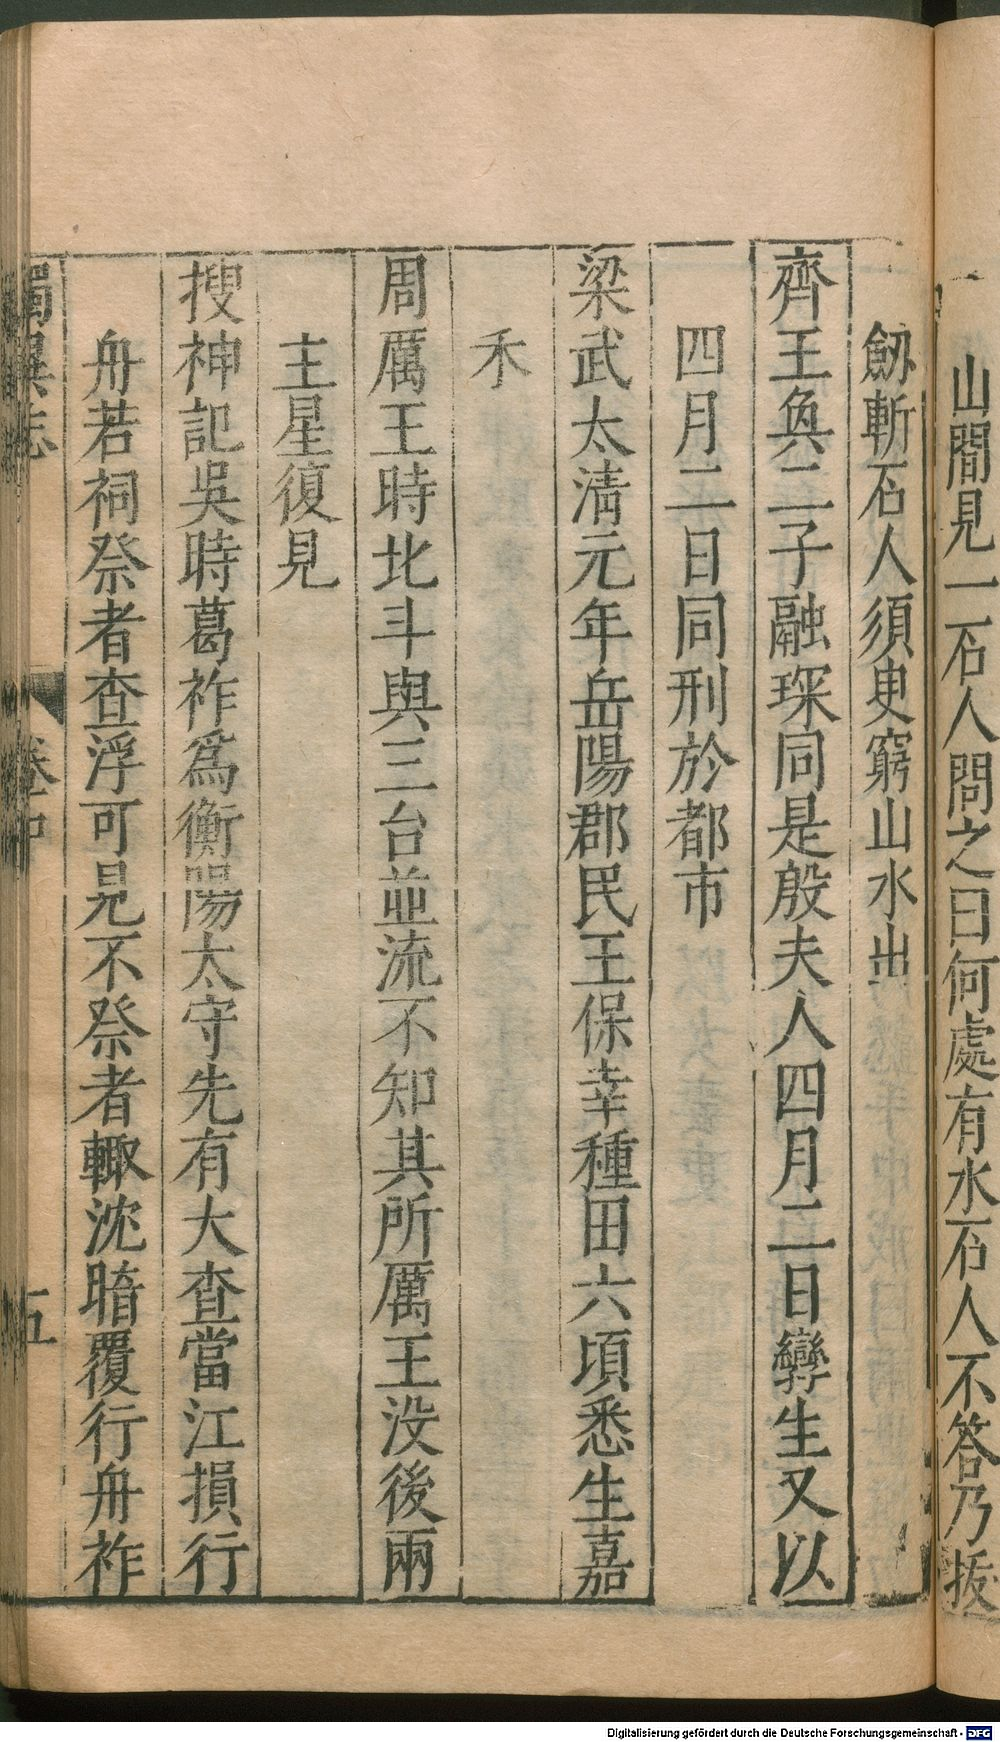 山間見一石人問之曰何處有水石人不答乃拔
劒斬石人須臾窮山水出
齊王奐二子融琛同是殷夫人四月二日孿生又以
四月二日同刑於都市
梁武太淸元年岳陽郡民王保幸種田六頃悉生嘉
禾
周厲王時北斗與三台並流不知其所厲王没後兩
主星復見
搜神記吳時葛祚爲衡陽太守先有大查當江損行
舟若祠祭者查浮可見不祭者輙沈暗覆行舟祚
獨異志
卷中
五
Digitalisierung gefördert durch die Deutsche Forschungsgemeinschaft - DFG